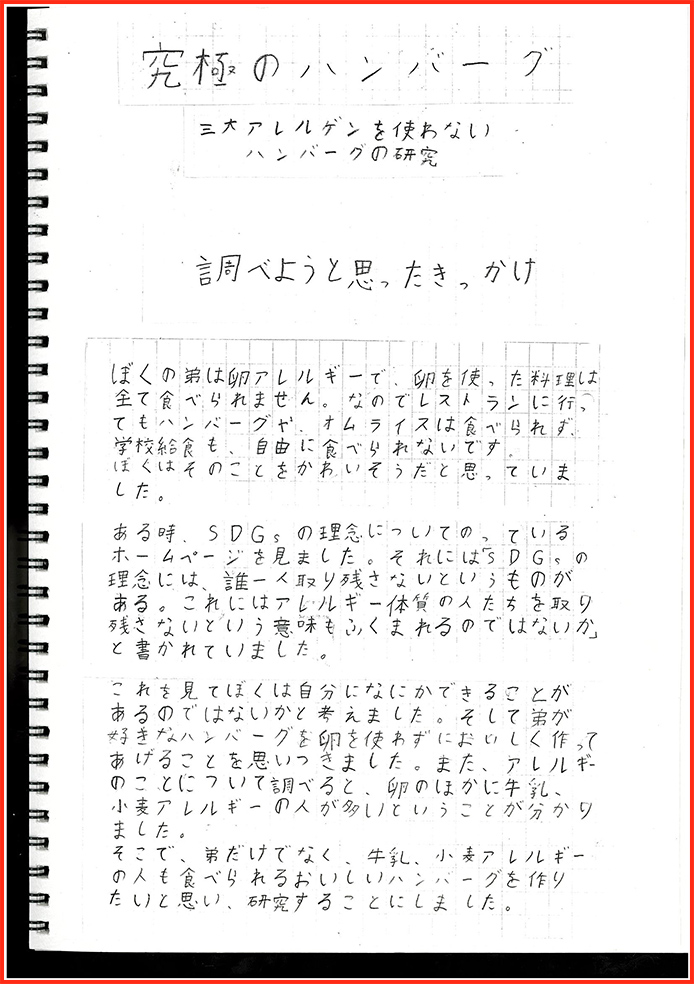 究極のハンバーグ
三大アレルゲンを使わない
ハンバーグの研究
調べようと思ったきっかけ
ぼくの弟は卵アレルギーで、卵を使った料理は
全て食べられません。なのでレストランに行っ
てもハンバーグや、オムライスは食べられず、
学校給食も、自由に食べられないです。
ぼくはそのことをかわいそうだと思っていま
した。
ある時、SDGsの理念についてのっている
ホームページを見ました。それには「SDGsの
理念には、誰一人取り残さないというものが
ある。これにはアレルギー体質の人たちを取り
残さないという意味もふくまれるのではないか」
と書かれていました。
これを見てぼくは自分になにかできることが
あるのではないかと考えました。そして弟が
好きなハンバーグを卵を使わずにおいしく作って
あげることを思いつきました。また、アレルギー
のことについて調べると、卵のほかに牛乳、
小麦アレルギーの人が多いということが分かり
ました。
そこで、弟だけでなく、牛乳、小麦アレルギー
の人も食べられるおいしいハンバーグを作り
たいと思い、研究することにしました。